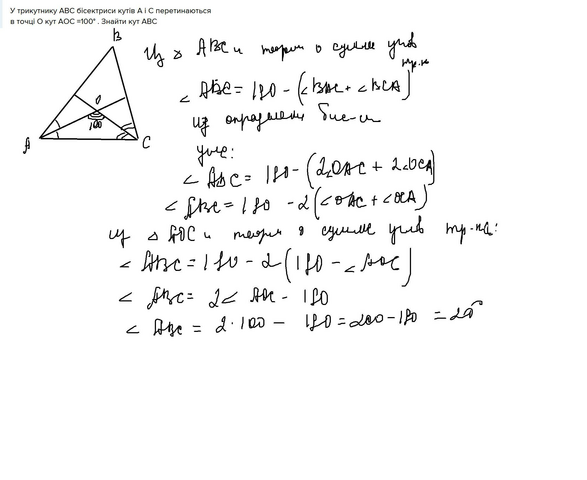 У трикутнику ABC бісектриси кутів A і C перетинаються
в точці О кут AOC =100° . Знайти кут ABC
B
O
100
A
C
Из △ ABC и теоремы о сумме углов
тр-ка
∠ ABC = 180 - (∠BAC + ∠BCA)
из определения бис-сы
угла:
∠ ABC = 180 - (2∠OAC + 2∠OCA)
∠ ABC = 180 - 2(∠OAC + ∠OCA)
из △ AOC и теоремы о сумме углов тр-ка:
∠ ABC = 180 - 2(180 - ∠AOC)
∠ ABC = 2∠ AOC - 180
∠ ABC = 2·100 - 180 = 200 - 180 = 20°